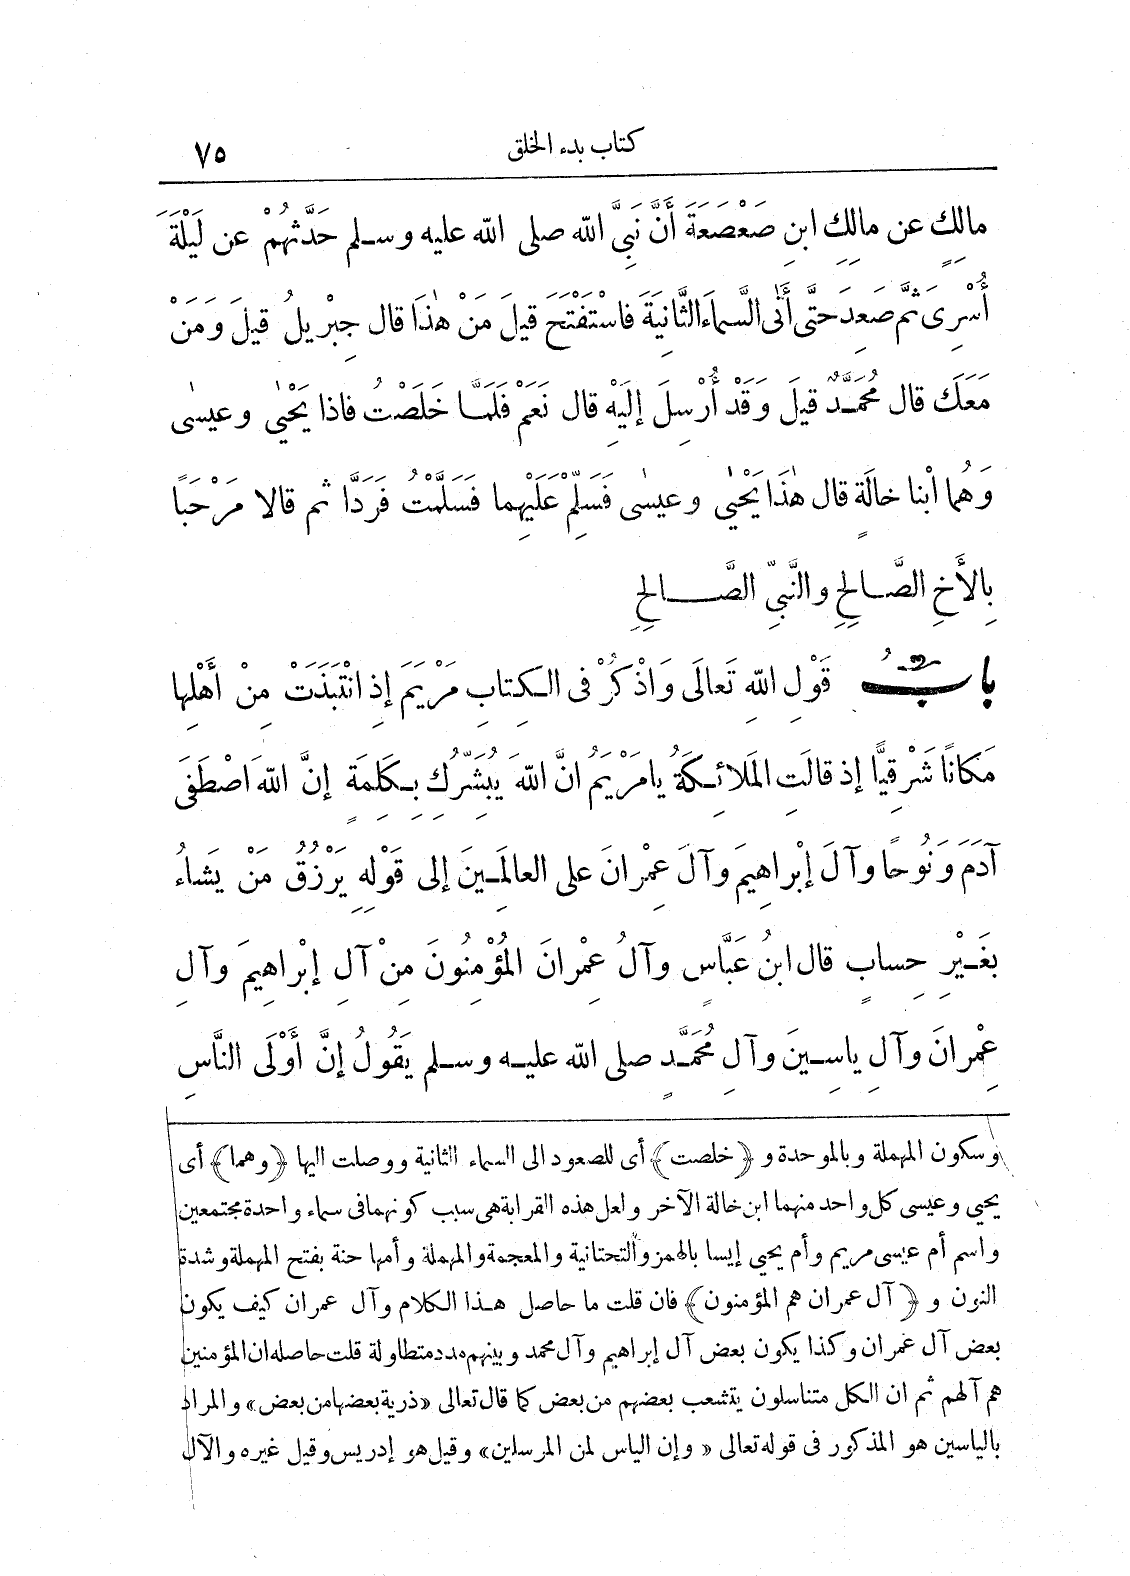 كتاب بدء الخلق ٧٥
مالِكٍ عن مالِكِ ابنِ صَعْصَعَةَ أَنَّ نَبِيَّ اللّه صلى اللّه عليه وسلم حَدَّثَهُمْ عن لَيْلَةَ
أُسْرِىَ ثُمَّ صَعِدَ حَتَّى أَتَى السَّماءَ الثَّانِيَةَ فاسْتَفْتَحَ قِيلَ مَنْ هٰذَا قال جِبْرِيلُ قِيلَ وَمَنْ
مَعَكَ قال مُحَمَّدٌ قِيلَ وَقَدْ أُرْسِلَ إِلَيْهِ قال نَعَمْ فَلَمَّا خَلَصْتُ فاذا يَحْيٰى وعيسٰى
وَهُما ابْنا خالَةٍ قال هٰذَا يَحْيٰى وعيسٰى فَسَلِّمْ عَلَيْهِما فَسَلَّمْتُ فَرَدَّا ثم قالا مَرْحَبًا
بِالأَخِ الصَّالِحِ والنَّبِيِّ الصَّالِحِ
بابُ قَوْلِ اللّهِ تَعالَى وَاذْكُرْ فى الكِتابِ مَرْيَمَ إِذِ انْتَبَذَتْ مِنْ أَهْلِها
مَكانًا شَرْقِيًّا إذ قالَتِ المَلائِكَةُ يامَرْيَمُ انَّ اللّهَ يُبَشِّرُكِ بِكَلِمَةٍ إنَّ اللّهَ اصْطَفَى
آدَمَ وَنُوحًا وآلَ إبْراهِيمَ وآلَ عِمْرانَ على العالَمِينَ إلى قَوْلِهِ يَرْزُقُ مَنْ يَشاءُ
بِغَيْرِ حِسابٍ قال ابنُ عَبَّاسٍ وآلُ عِمْرانَ المُؤْمِنُونَ مِنْ آلِ إبْراهِيمَ وآلِ
عِمْرانَ وآلِ ياسِينَ وآلِ مُحَمَّدٍ صلى اللّه عليه وسلم يَقُولُ إنَّ أَوْلَى النَّاسِ
وسكون المهملة وبالموحدة و ﴿خلصت﴾ أى للصعود الى السماء الثانية ووصلت اليها ﴿وهما﴾ أى
يحيى وعيسى كل واحد منهما ابن خالة الآخر ولعل هذه القرابة هى سبب كونهما فى سماء واحدة مجتمعين
واسم أم عيسى مريم وأم يحيى إيسا بالهمز والتحتانية والمعجمة والمهملة وأمها حنة بفتح المهملة وشدة
النون و ﴿آل عمران هم المؤمنون﴾ فان قلت ما حاصل هذا الكلام وآل عمران كيف يكون
بعض آل عمران وكذا يكون بعض آل إبراهيم وآل محمد وبينهم مدد متطاولة قلت حاصله ان المؤمنين
هم آلهم ثم ان الكل متناسلون يتشعب بعضهم من بعض كما قال تعالى «ذرية بعضها من بعض» والمراد
بالياسين هو المذكور فى قوله تعالى «وإن الياس لمن المرسلين» وقيل هو إدريس وقيل غيره والآل